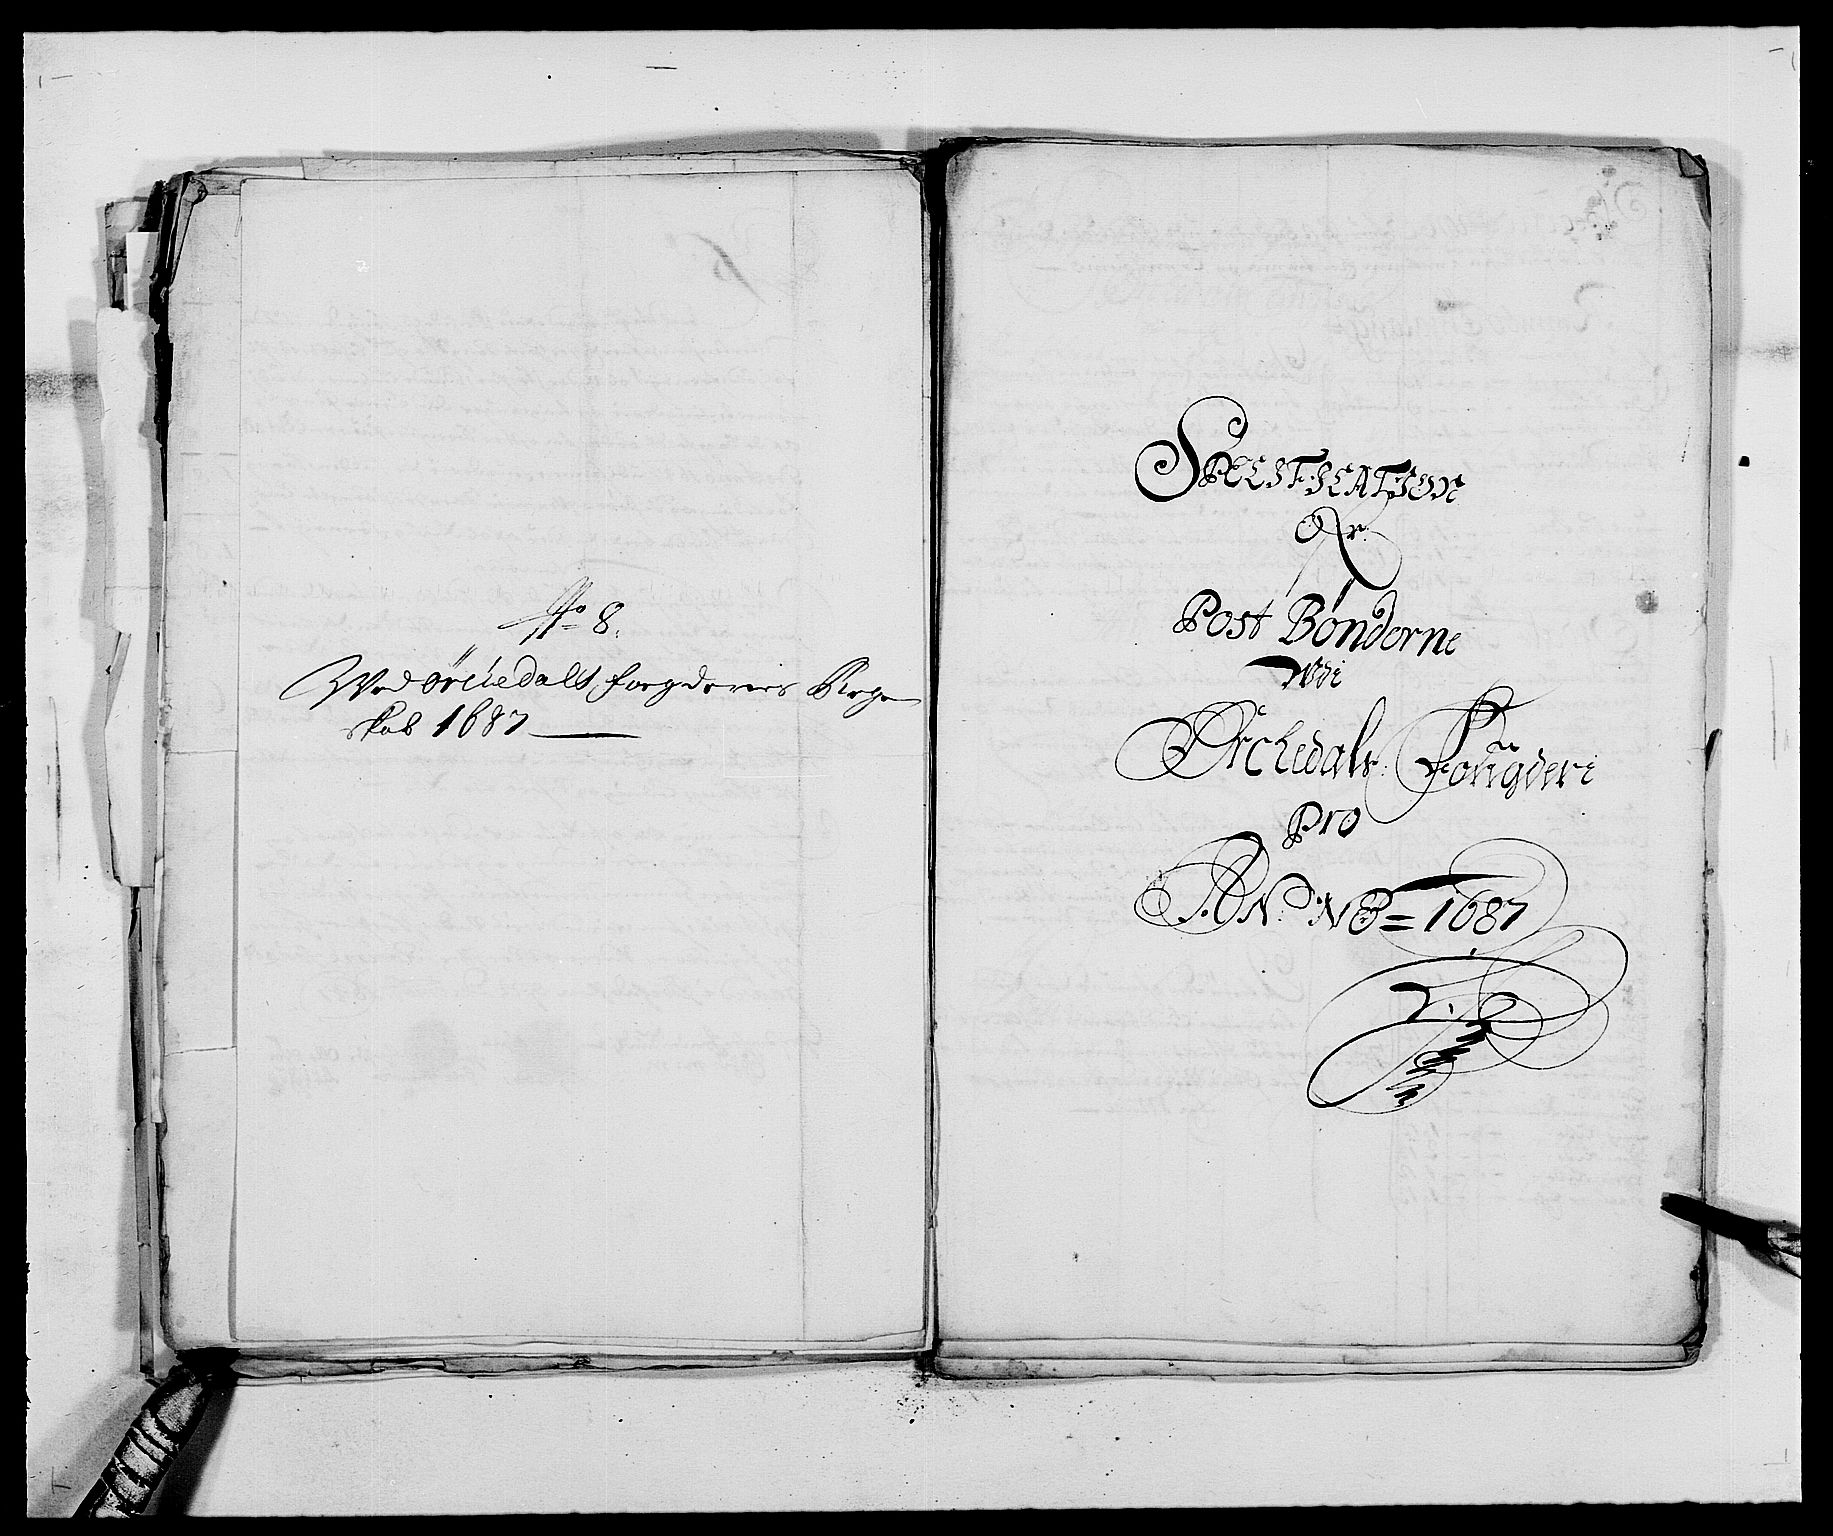 No 8.
Wed örchedals fougderies Regen
skab 1687
SPECIFICATION
Ofr
Post Bönderne
Udi
Örchedals Fougderi
Pro
ANNO = 1687